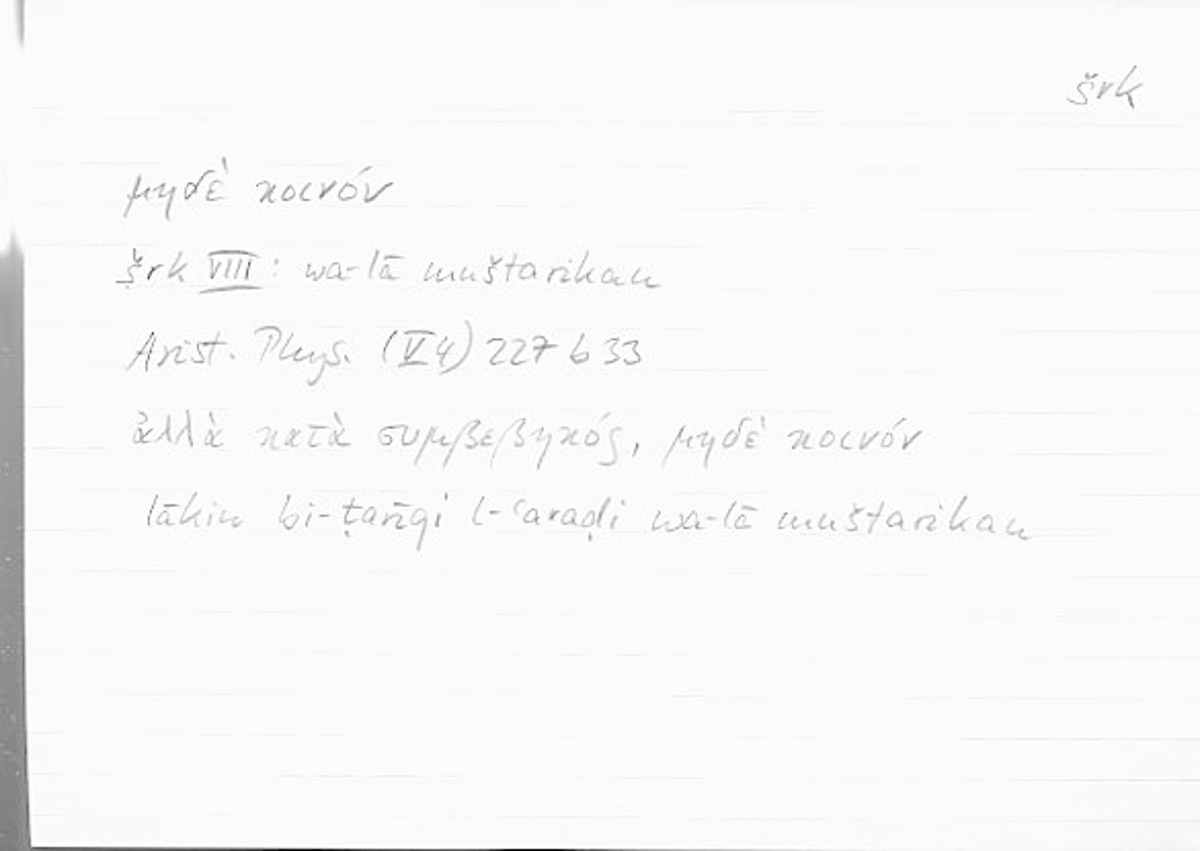 šrk
μηδὲ κοινόν
šrk VIII: wa-lā muštarikan
Arist. Phys. (V 4) 227 b 33
ἀλλὰ κατὰ συμβεβηκός, μηδὲ κοινόν
lākin bi-ṭarīqi l-ʿaraḍi wa-lā muštarikan